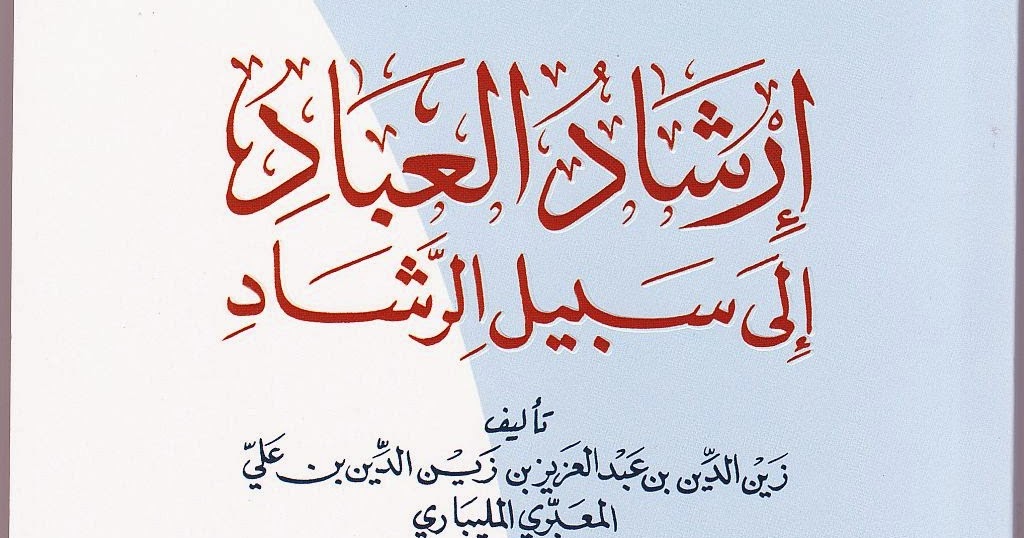 إِرْشَادُ العِبَادِ
إِلَى سَبِيلِ الرَّشَادِ
تأليف
زَيْن الدِّين بن عَبْد العزيز بن زَيْن الدِّين بن عَليّ
المعبَّري المليباري